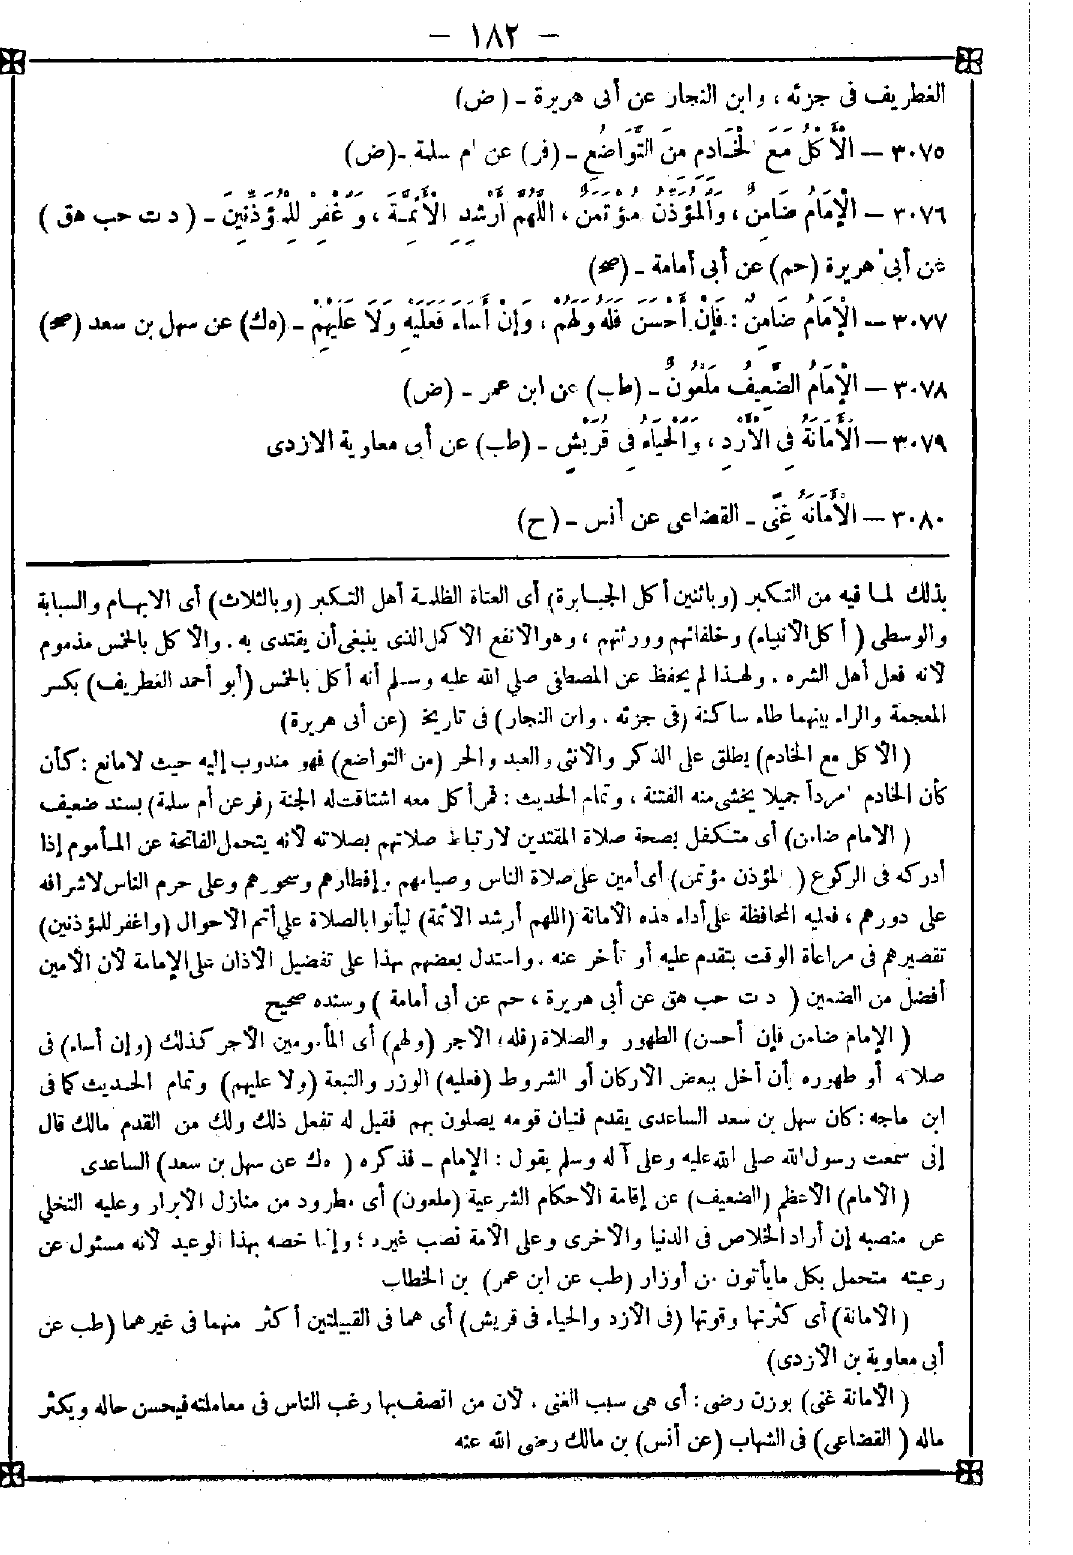 - ١٨٢ -
الغطريف فى جزئه ، وابن النجار عن أبى هريرة - (ض)
٣٠٧٥ - الْأَكْلُ مَعَ الْخَادِمِ مِنَ التَّوَاضُعِ - (فر) عن أم سلمة - (ض)
٣٠٧٦ - الْإِمَامُ ضَامِنٌ ، وَالْمُؤَذِّنُ مُؤْتَمَنٌ ، اللَّهُمَّ أَرْشِدِ الْأَئِمَّةَ ، وَغْفِرْ لِلْمُؤَذِّنِينَ - ( د ت حب هق )
عن أبى هريرة (حم) عن أبى أمامة - (صح)
٣٠٧٧ - الْإِمَامُ ضَامِنٌ : فَإِنْ أَحْسَنَ فَلَهُ وَلَهُمْ ، وَإِنْ أَسَاءَ فَعَلَيْهِ وَلَا عَلَيْهِمْ - (ه ك) عن سهل بن سعد (صح)
٣٠٧٨ - الْإِمَامُ الضَّعِيفُ مَلْعُونٌ - (طب) عن ابن عمر - (ض)
٣٠٧٩ - الْأَمَانَةُ فِى الْأَزْدِ ، وَالْحَيَاءُ فِى قُرَيْشٍ - (طب) عن أبى معاوية الازدى
٣٠٨٠ - الْأَمَانَةُ غِنًى - القضاعى عن أنس - (ح)
بذلك لما فيه من التكبر (وباثنين أكل الجبابرة) أى العتاة الظلمة أهل التكبر (وبالثلاث) أى الابهام والسبابة
والوسطى ( أكل الانبياء) وخلفائهم وورثتهم ، وهو الانفع الاكمل الذى ينبغى أن يقتدى به . والاكل بالخمس مذموم
لانه فعل أهل الشره . ولهذا لم يحفظ عن المصطفى صلي الله عليه وسلم أنه أكل بالخمس (أبو أحمد الغطريف) بكسر
المعجمة والراء بينهما طاء ساكنة (فى جزئه . وابن النجار) فى تاريخ (عن أبى هريرة)
( الاكل مع الخادم) يطلق على الذكر والانثى والعبد والحر (من التواضع) فهو مندوب إليه حيث لامانع : كأن
كأن الخادم أمرداً جميلا يخشى منه الفتنة ، وتمام الحديث : فمن أكل معه اشتاقت له الجنة (فر عن أم سلمة) بسند ضعيف
( الامام ضامن) أى متكفل بصحة صلاة المقتدين لارتباط صلاتهم بصلاته لأنه يتحمل الفاتحة عن المأموم إذا
أدركه فى الركوع ( المؤذن مؤتمن) أى أمين على صلاة الناس وصيامهم وإفطارهم وسحورهم وعلى حرم الناس لاشرافه
على دورهم ، فعليه المحافظة على أداء هذه الأمانة (اللهم أرشد الأئمة) ليأتوا بالصلاة على أتم الاحوال (واغفر للمؤذنين)
تقصيرهم فى مراعاة الوقت بتقدم عليه أو تأخر عنه . واستدل بعضهم بهذا على تفضيل الأذان على الإمامة لأن الأمين
أفضل من الضمين ( د ت حب هق عن أبى هريرة ، حم عن أبى أمامة ) وسنده صحيح
( الإمام ضامن فإن أحسن) الطهور والصلاة (فله) الأجر (ولهم) أى المأمومين الأجر كذلك (وإن أساء) فى
صلاته أو طهوره بأن أخل ببعض الأركان أو الشروط (فعليه) الوزر والتبعة (ولا عليهم) وتمام الحديث كما فى
ابن ماجه : كان سهل بن سعد الساعدى يقدم فتيان قومه يصلون بهم فقيل له تفعل ذلك ولك من القدم مالك قال
إنى سمعت رسول الله صلى الله عليه وعلى آله وسلم يقول : الإمام - فذكره ( ه ك عن سهل بن سعد) الساعدى
( الامام) الأعظم (الضعيف) عن إقامة الأحكام الشرعية (ملعون) أى مطرود من منازل الأبرار وعليه التخلي
عن منصبه إن أراد الخلاص فى الدنيا والأخرى وعلى الأمة نصب غيره ؛ وإنما خصه بهذا الوعيد لأنه مسئول عن
رعيته متحمل بكل ما يأتون من أوزار (طب عن ابن عمر) بن الخطاب
( الأمانة) أى كثرتها وقوتها (فى الأزد والحياء فى قريش) أى هما فى القبيلتين أكثر منهما فى غيرهما (طب عن
أبى معاوية بن الأزدى)
( الأمانة غنى) بوزن رضى : أى هى سبب الغنى . لأن من اتصف بها رغب الناس فى معاملته فيحسن حاله ويكثر
ماله ( القضاعى) فى الشهاب (عن أنس) بن مالك رضى الله عنه